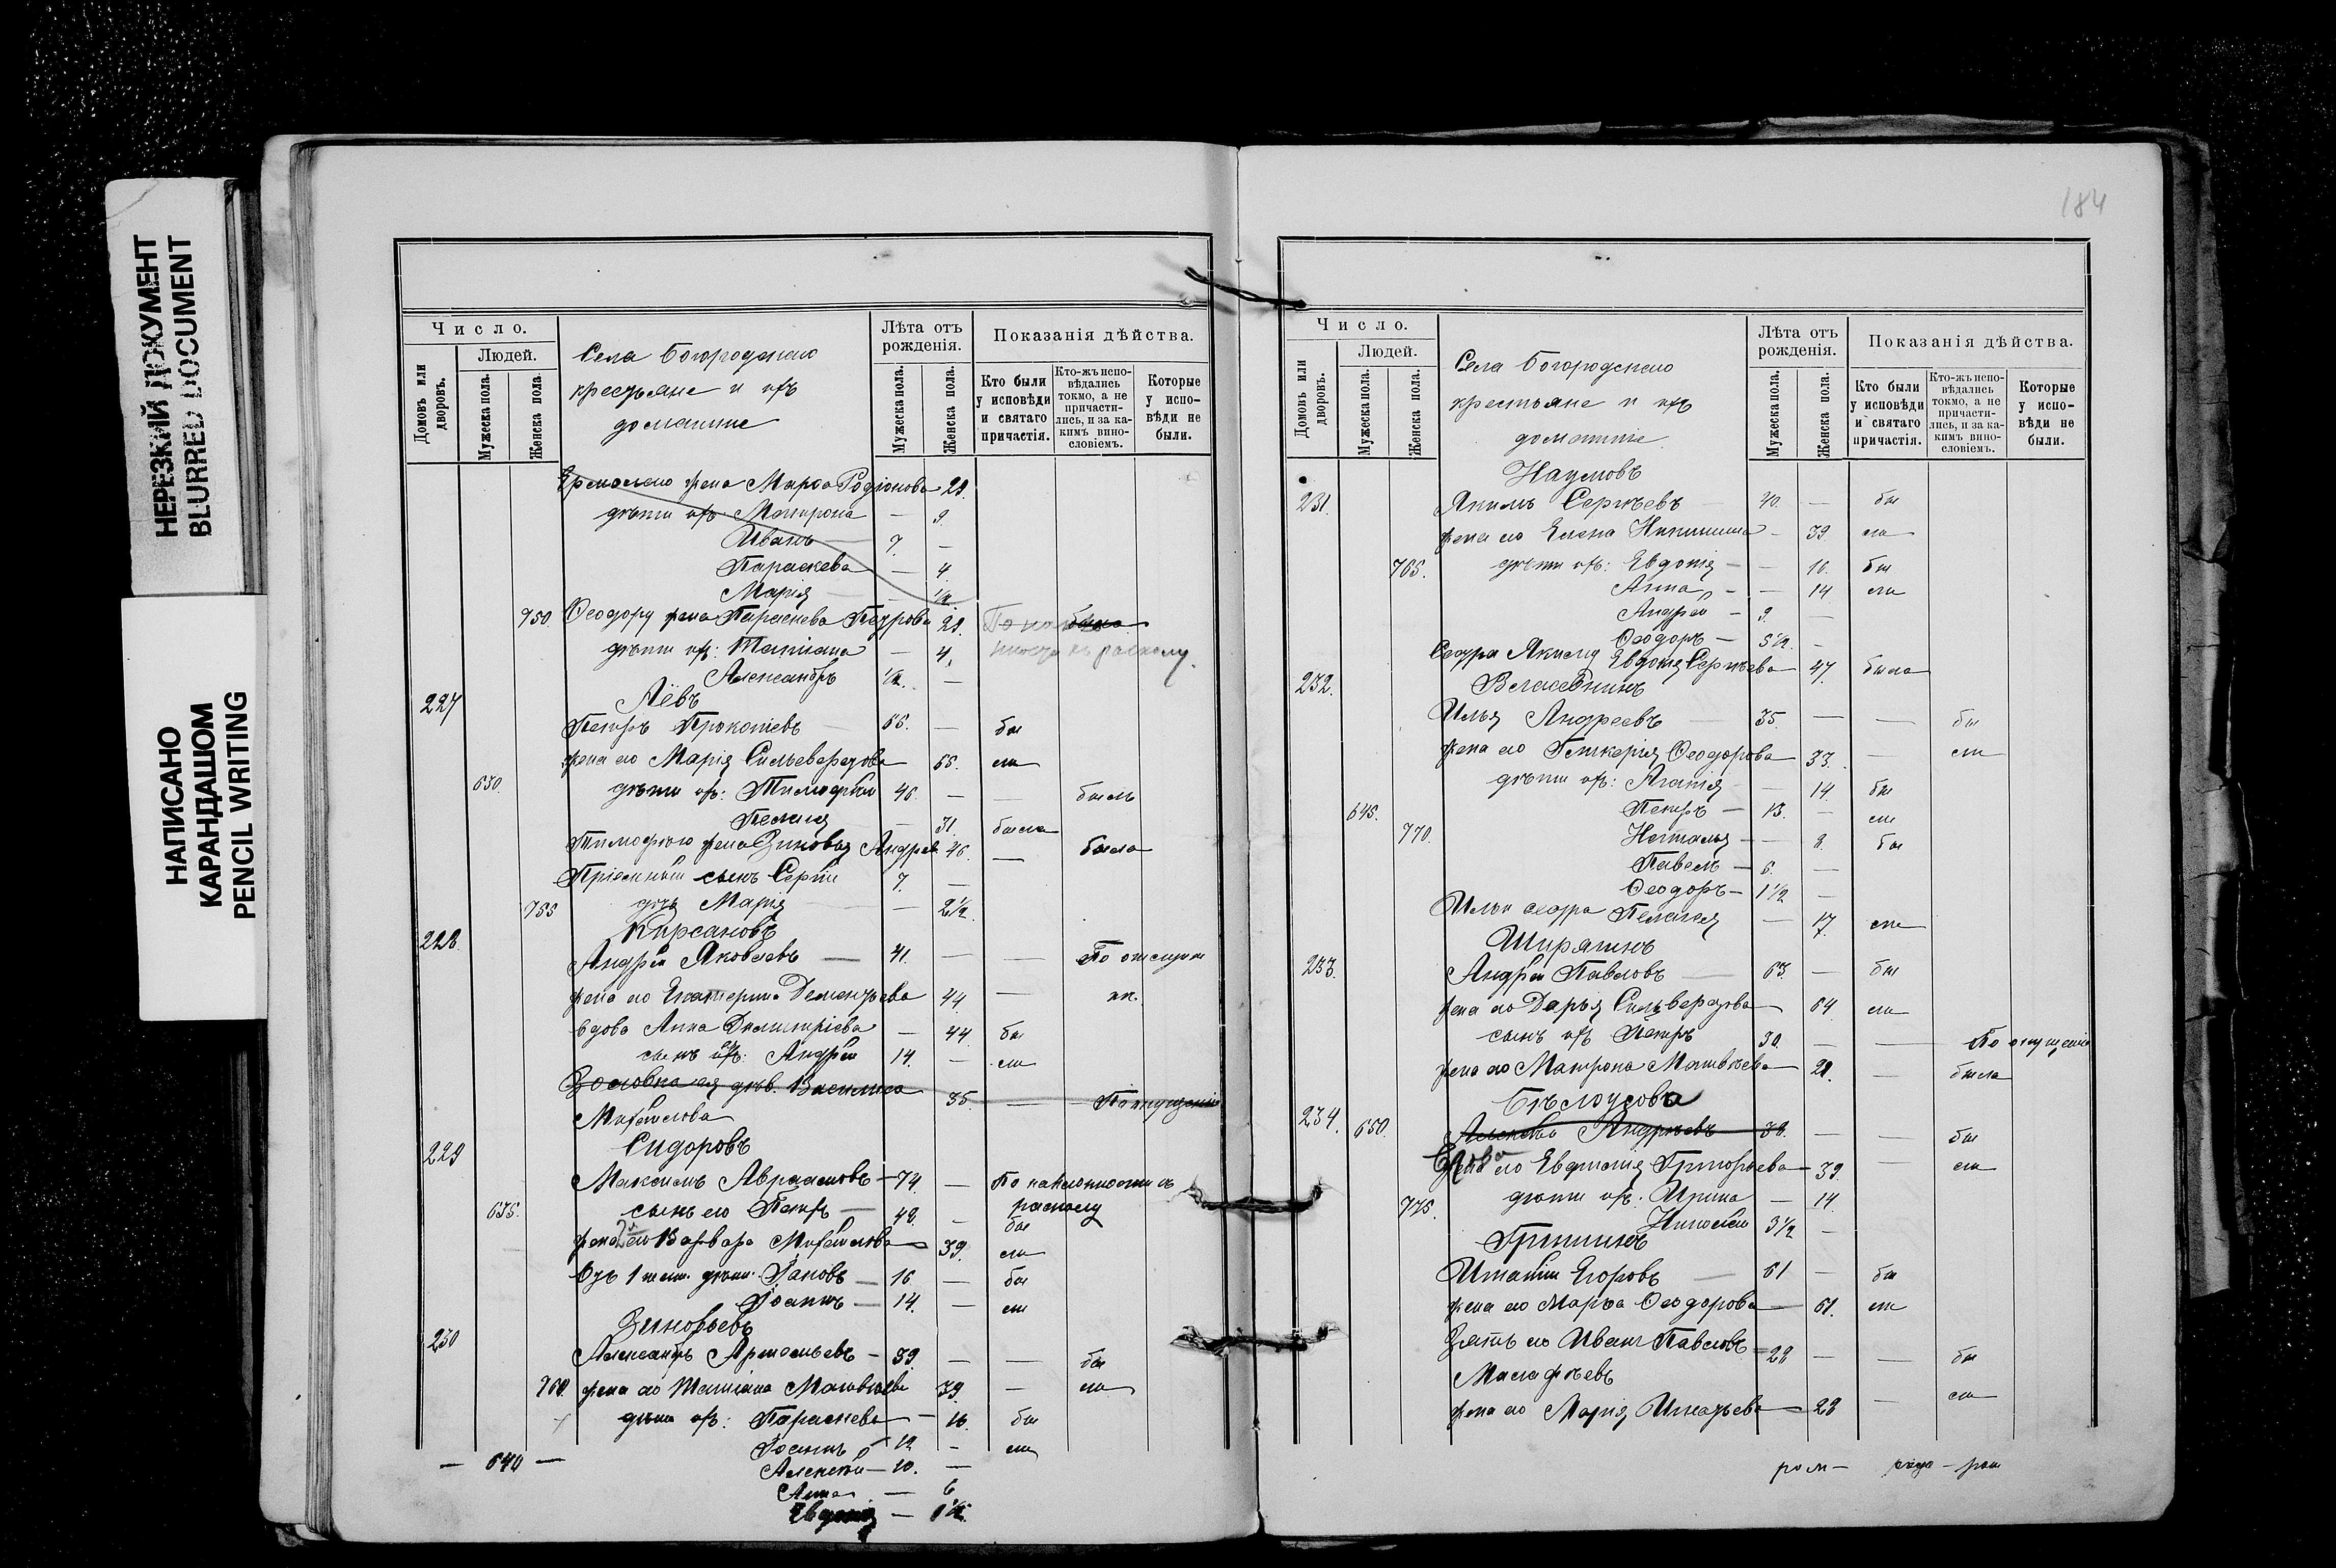 НЕРЕЗКИЙ ДОКУМЕНТ
BLURRED DOCUMENT
НАПИСАНО
КАРАНДАШОМ
PENCIL WRITING
Число.
Домовъ или дворовъ.
Людей.
Мужеска пола.
Женска пола.
Села Богородскаго
крестьяне и ихъ
домашніе
Лѣта отъ рожденія.
Мужеска пола.
Женска пола.
Показанія дѣйства.
Кто были у исповѣди и святаго причастія.
Кто-жъ исповѣдались токмо, а не причастились, и за какимъ винословіемъ.
Которые у исповѣди не были.
жена Марѳа Родіонова 29.
дѣти ихъ: Матрона — 9.
Иванъ — 7. —
Параскева — 4.
Марія — 1/2
750. Ѳеодору жена Параскева Петрова 29.
дѣти ихъ: Татіана — 4.
Александръ 1/2. —
227 Лёвъ
Петръ Прокопіевъ 65. — бы
жена его Марія Сильверстова 65. ли
630. дѣти ихъ: Тимофей 46. — — былъ
Пелагія — 31. была
Тимофею жена Зиновія Андрев. 46. — была
Пріемный сынъ Сергій 7. —
755 дочь Марія — 2 1/2
228. Кирсановъ
Андрей Яковлевъ — 41. — —
жена его Екатерина Дементьева 44. —
вдова Анна Димитріева — 44. бы
сынъ Андрей 14. — ли
дѣв. Василиса 35. — По опущенію
Михайлова
229 Сидоровъ
Максимъ Авраамовъ — 74. — По наклонности къ
расколу
635. сынъ его Петръ — 48. — бы
жена его Варвара Михайлова 39. ли
Отъ 1 жен. дѣти: Іаковъ — 16 — бы
Іоаннъ — 14. — ли
230 Зиновьевъ
Александръ Артемьевъ — 39. — — бы
760. жена его Татіана Матвѣева 39. — ли
дѣти ихъ: Параскева — 16. бы
Іоаннъ 12 — ли
— 640 — Алексѣй — 10. —
Анна — 6
Евдокія — 1 1/2
184
Число.
Домовъ или дворовъ.
Людей.
Мужеска пола.
Женска пола.
Села Богородскаго
крестьяне и ихъ
домашніе
Лѣта отъ рожденія.
Мужеска пола.
Женска пола.
Показанія дѣйства.
Кто были у исповѣди и святаго причастія.
Кто-жъ исповѣдались токмо, а не причастились, и за какимъ винословіемъ.
Которые у исповѣди не были.
Наумовъ
231. Якимъ Сергѣевъ 40. — бы
жена его Елена Никитина — 39. ли
765. дѣти ихъ: Евдокія — — 16. бы
Анна — — 14 ли
Андрей — 9. —
Ѳеодоръ — 5 1/2. —
Сестра Якиму Евдокія Сергѣева 47. была
232.
Илья Андреевъ 35. — — бы
жена его Гликерія Ѳеодорова 33. — ли
дѣти ихъ: Агапія — 14. бы
645. Петръ — 13. — ли
770. Наталья — — 8. бы
Павелъ — 6. —
Ѳеодоръ — 1 1/2 —
Ильи сестра Пелагея — 17. ли
Ширягинъ
233. Андрей Павловъ 63. — бы
жена его Дарья Сильверстова 64. ли
сынъ ихъ Петръ 30. — — По опущенію
жена его Матрона Матвѣева 29. — была
Бѣлоусова
234. 650. Алексѣй Андреевъ 38. — — бы
его Евдокія Григорьева 39. — ли
775. дѣти ихъ: Ирина — 14.
Николай 3 1/2 —
Гришинъ
Игнатій Егоровъ 61 — бы
жена его Марѳа Ѳеодорова 61. ли
Зять его Иванъ Павловъ — 28 — — бы
жена его Марія Игнатьева 28 — ли